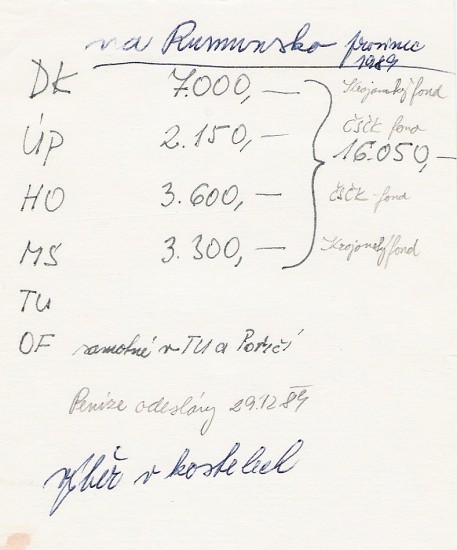 na Rumunsko prosinec
1989
DK 7.000,— Krajanský fond
ÚP 2.150,— ČSČK fond
16.050,—
HO 3.600,— ČSČK fond
MS 3.300,— Krajanský fond
TU
OF samotné v TU a Poříčí
Peníze odeslány 29.12.89
výběr v kostelech